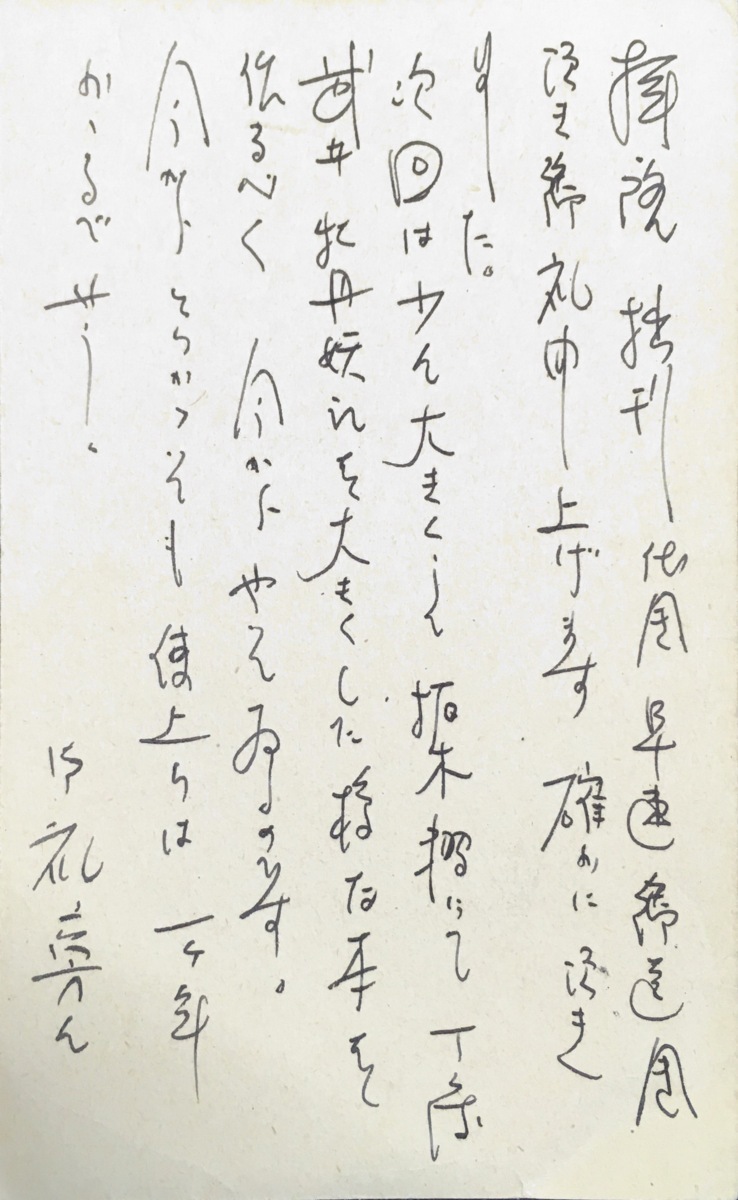 拝啓 拙刊 代金 早速御送金
頂き御礼申上げます 確かに頂き
ました。
次回は少し大きくして 摺にて 丁度
武井 牡丹妖記を大きくした様な本を
作るべく 今から やって居るのです。
今から とりかつても 使上りは 一ケ年
かゝるでせう。
御礼旁々